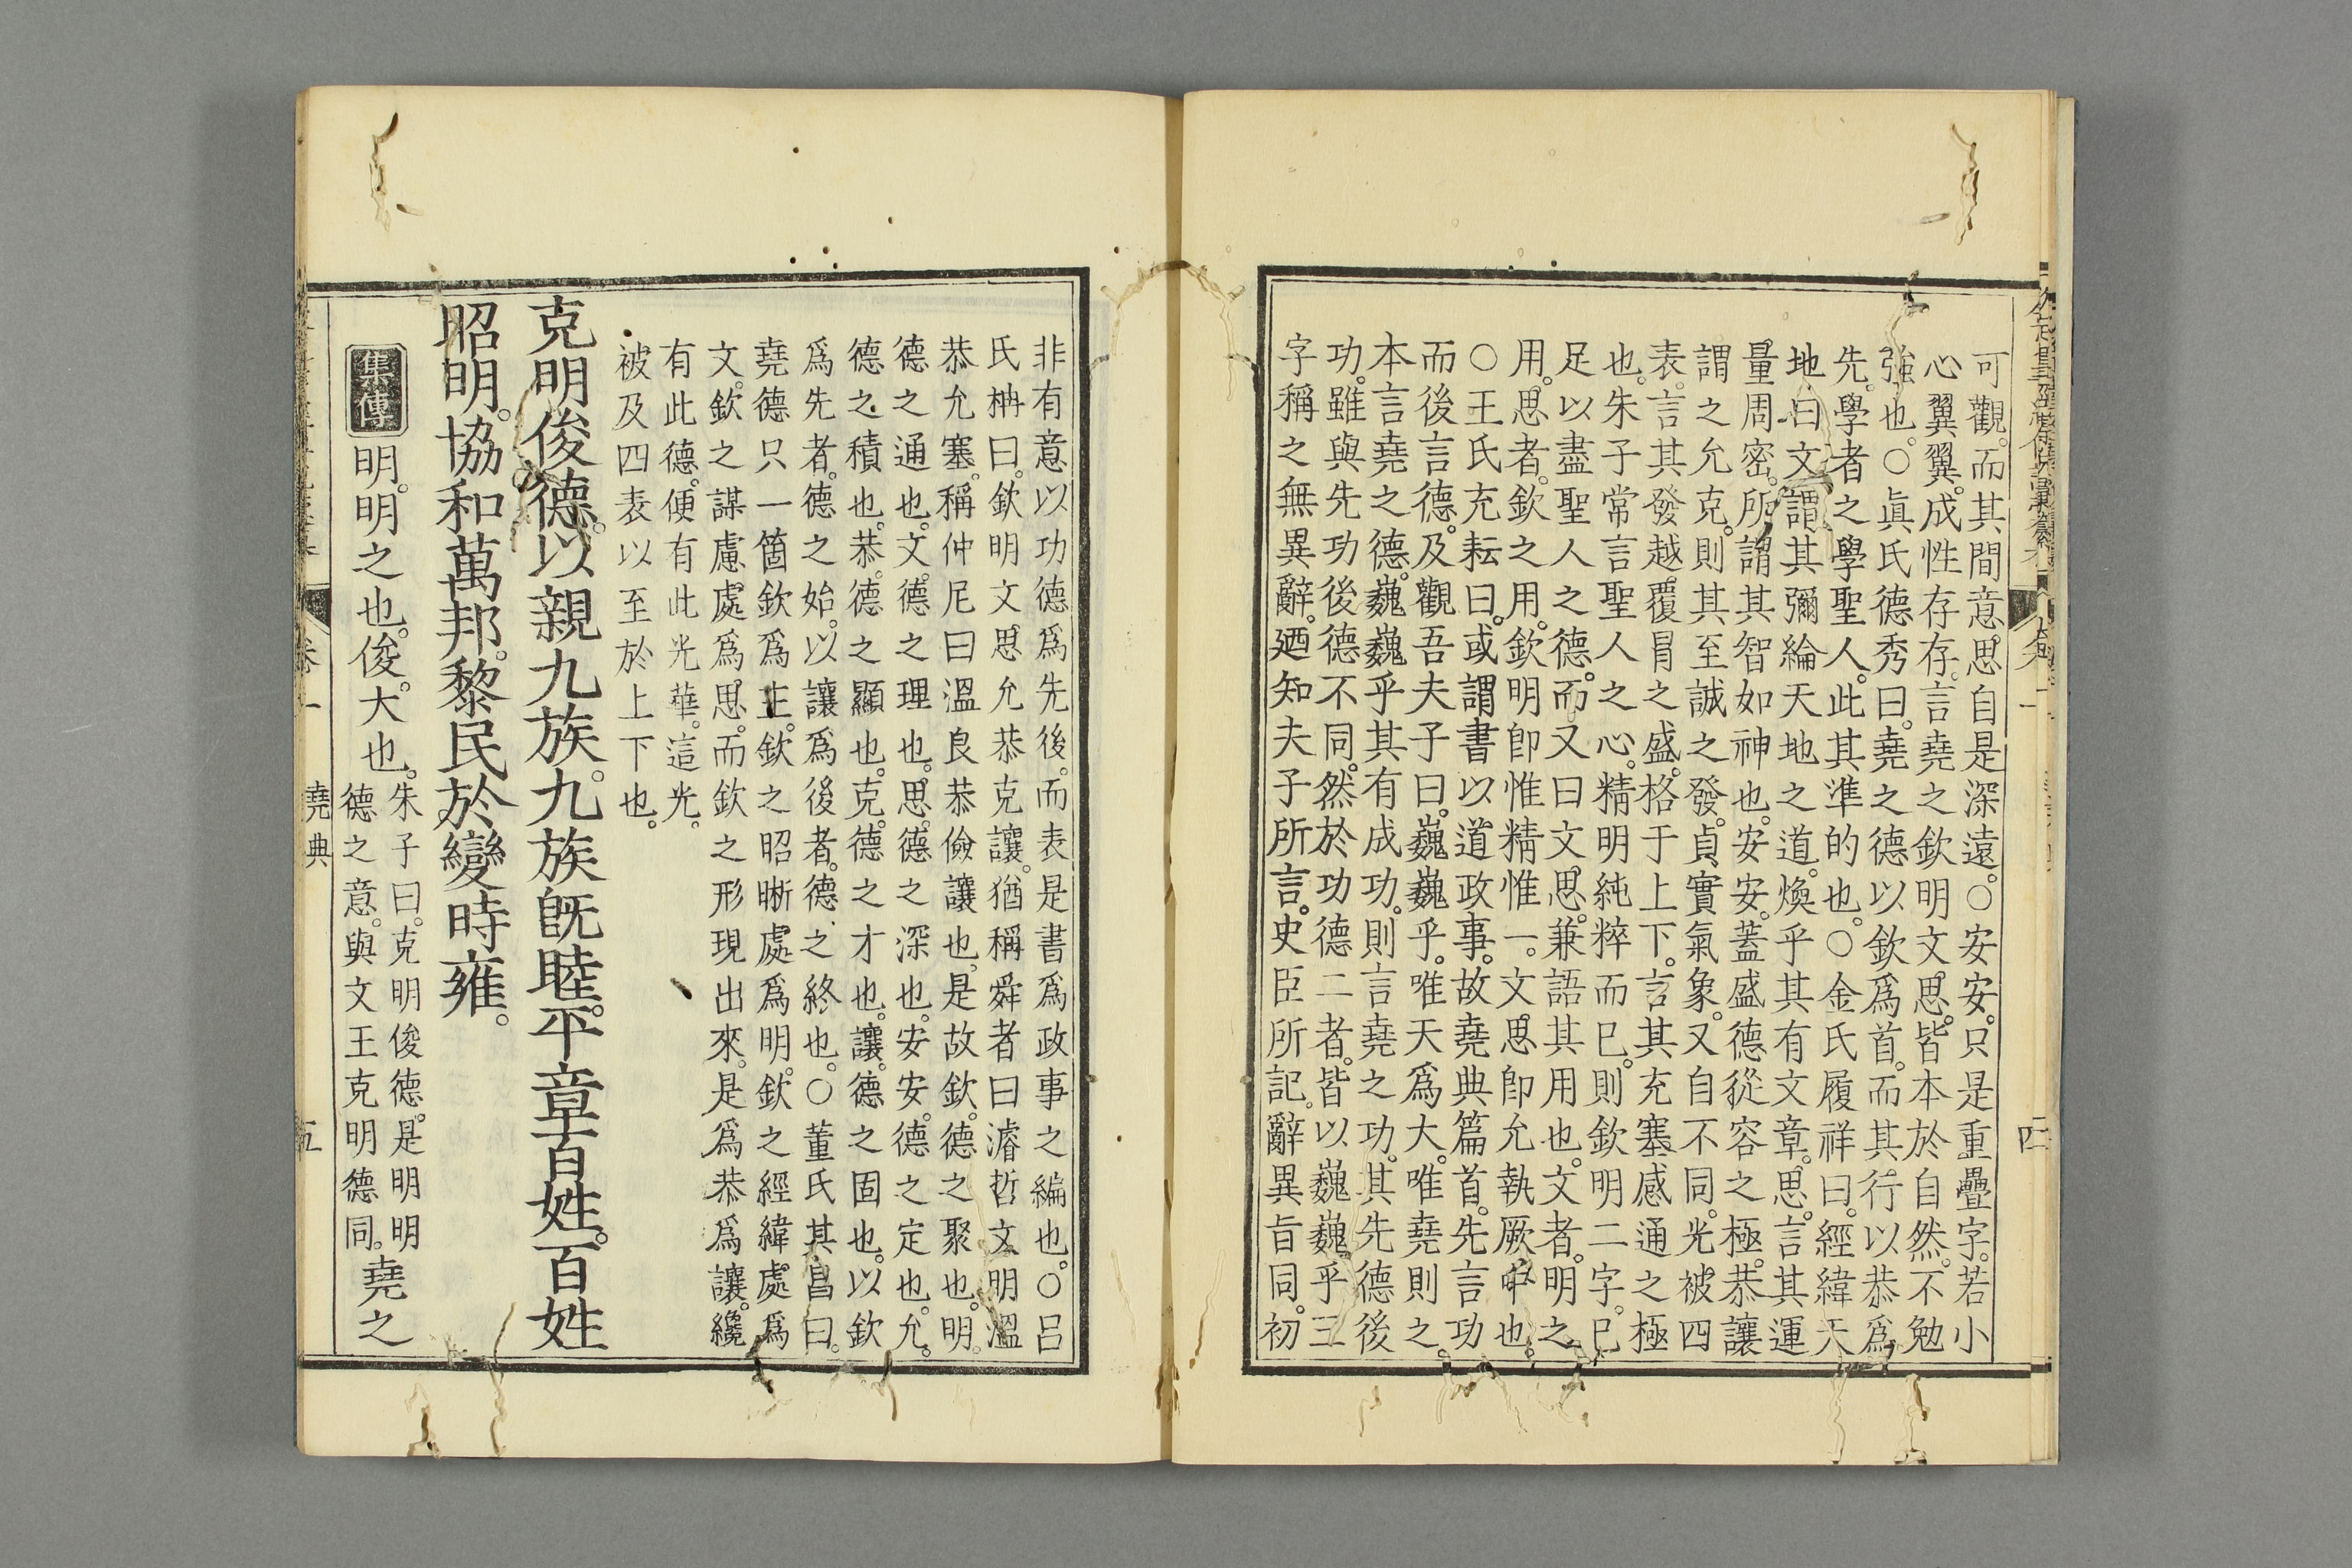 可觀。而其間意思自是深遠。○安安。只是重疊字。若小
心翼翼。成性存存。言堯之欽明文思。皆本於自然。不勉
強也。○眞氏德秀曰。堯之德以欽爲首。而其行以恭爲
先。學者之學聖人。此其準的也。○金氏履祥曰。經緯天
地曰文。謂其彌綸天地之道。煥乎其有文章。思。言其運
量周密。所謂其智如神也。安安。蓋盛德從容之極。恭讓
謂之允克。則其至誠之發。貞實氣象。又自不同。光被四
表。言其發越。覆冒之盛。格于上下。言其充塞感通之極
也。朱子常言聖人之心。精明純粹而已。則欽明二字。已
足以盡聖人之德。而又曰文思。兼語其用也。文者。明之
用。思者。欽之用。欽明卽惟精惟一。文思卽允執厥中也。
○王氏充耘曰。或謂書以道政事。故堯典篇首。先言功
而後言德。及觀吾夫子曰。巍巍乎。唯天爲大。唯堯則之
本言堯之德。巍巍乎其有成功。則言堯之功。其先德後
功。雖與先功後德不同。然於功德二者。皆以巍巍乎三
字稱之無異辭。廼知夫子所言。史臣所記。辭異旨同。初
四
非有意以功德爲先後。而表是書爲政事之編也。○呂
氏枏曰。欽明文思允恭克讓。猶稱舜者曰濬哲文明溫
恭允塞。稱仲尼曰溫良恭儉讓也。是故欽。德之聚也。明。
德之通也。文。德之理也。思。德之深也。安安。德之定也。允。
德之積也。恭。德之顯也。克。德之才也。讓。德之固也。以欽
爲先者。德之始。以讓爲後者。德之終也。○董氏其昌曰。
堯德只一箇欽爲主。欽之昭晰處爲明。欽之經緯處爲
文。欽之謀慮處爲思。而欽之形現出來。是爲恭爲讓。纔
有此德。便有此光華。這光。
被及四表以至於上下也。
克明俊德。以親九族。九族旣睦。平章百姓。百姓
昭明。協和萬邦。黎民於變時雍。
集傳 明。明之也。俊。大也。朱子曰。克明俊德。是明明
德之意。與文王克明德同。堯之
卷一
堯典
五